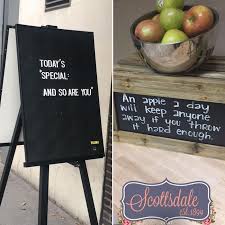 TODAY'S
"SPECIAL:
AND SO ARE YOU"
An apple a day
will keep anyone
away if you throw
it hard enough.
Scottsdale
est. 1894